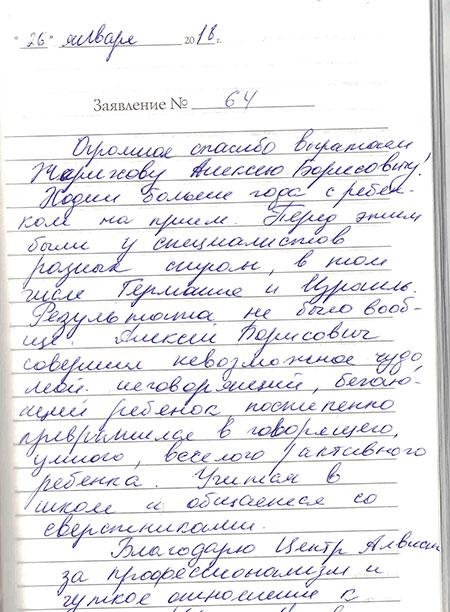 "26" января 2018 г.
Заявление № 64
Огромное спасибо выражаем
Алексею Борисовичу!
Ходим больше года с ребён-
ком на прием. Перед этим
были у специалистов
разных стран, в том
числе Германие и Израиль.
Результата не было вооб-
ще. Алексей Борисович
совершил невозможное чудо
мой неговорящий, бегаю-
щий ребёнок постепенно
превратился в говорящего,
умного, веселого, активного
ребенка. Учится в
школе и общается со
сверстниками.
Благодарю Центр
за профессионализм и
чуткое отношение к